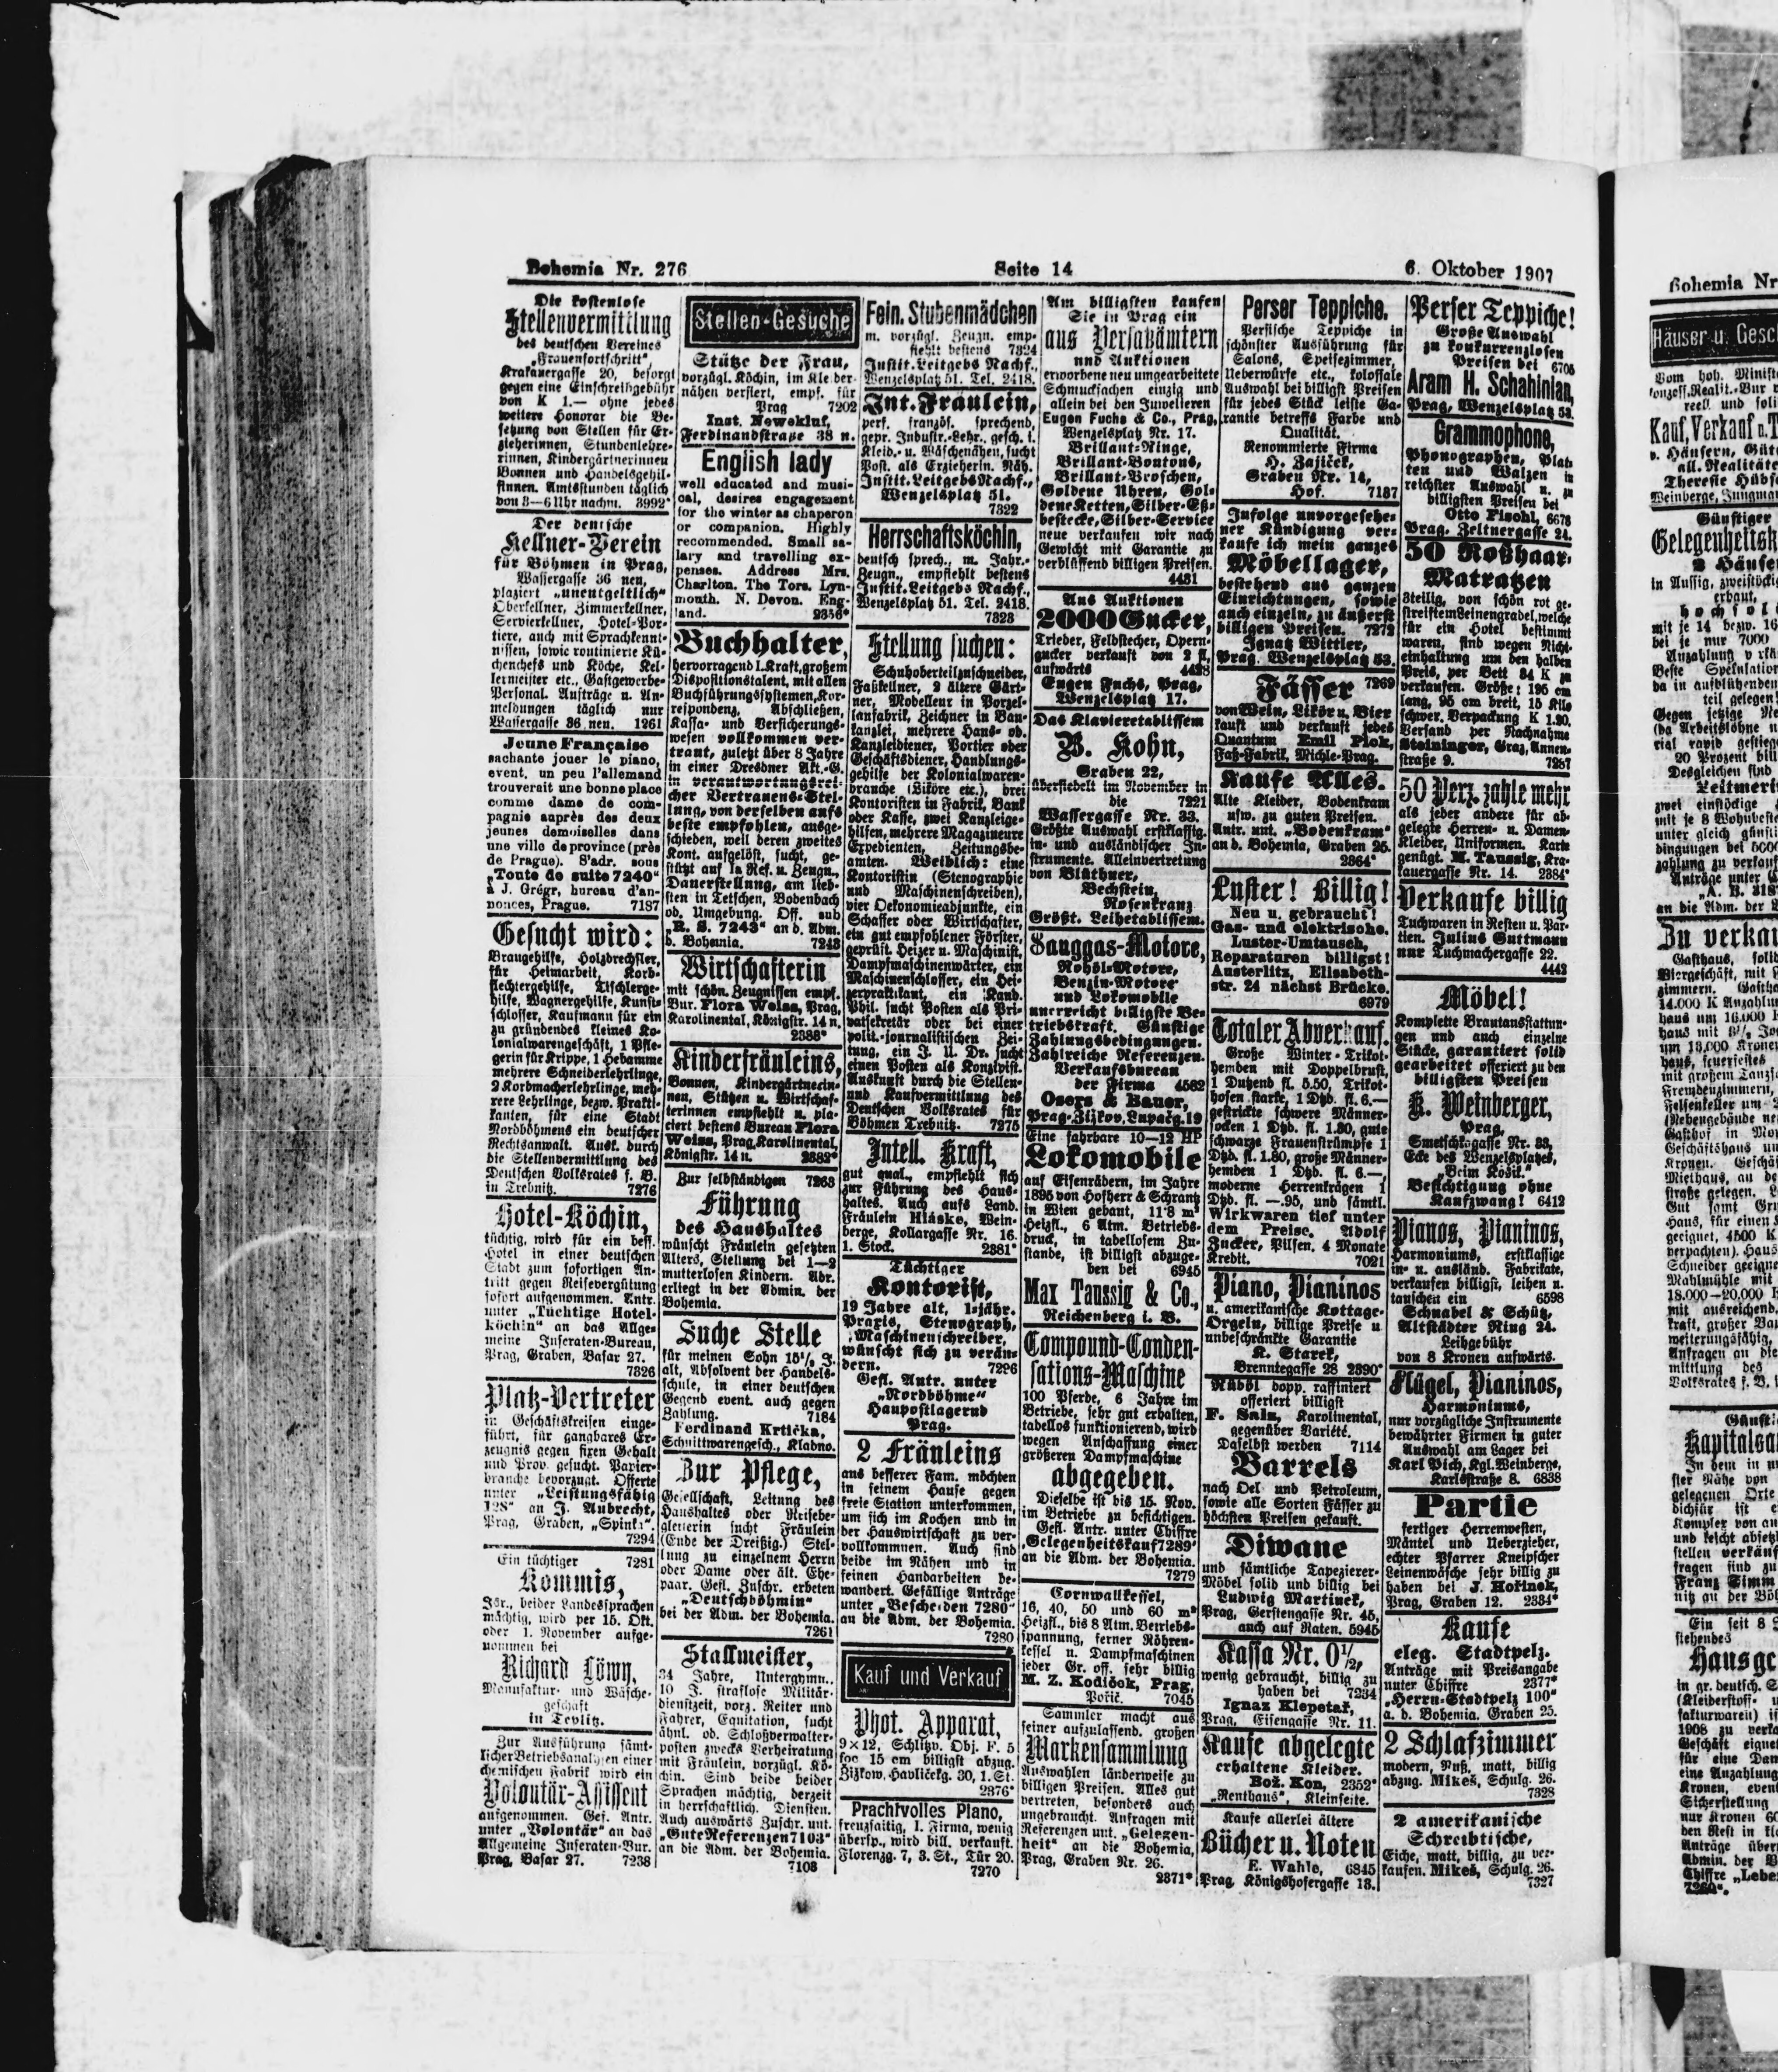 Bohemia Nr. 276
Seite 14
6. Oktober 1907
Die kostenlose
Stellenvermittlung
des deutschen Vereines
„Frauenfortschritt“,
Krakauergasse 20, besorgt
gegen eine Einschreibgebühr
von K 1.— ohne jedes
weitere Honorar die Be-
setzung von Stellen für Er-
zieherinnen, Stundenlehre-
rinnen, Kindergärtnerinnen
Bonnen und Handelsgehil-
finnen. Amtsstunden täglich
von 3—6 Uhr nachm. 3992*
Der deutsche
Kellner-Verein
für Böhmen in Prag,
Wassergasse 36 neu,
plaziert „unentgeltlich“
Oberkellner, Zimmerkellner,
Servierkellner, Hotel-Por-
tiere, auch mit Sprachkennt-
nissen, sowie routinierte Kü-
chenchefs und Köche, Kel-
lermeister etc., Gastgewerbe-
Personal. Aufträge u. An-
meldungen täglich nur
Wassergasse 36 neu. 1261
Jeune Française
sachante jouer le piano,
event. un peu l'allemand
trouverait une bonne place
comme dame de com-
pagnie auprès des deux
jeunes demoiselles dans
une ville de province (près
de Prague). S'adr. sous
„Toute de suite 7240“
à J. Grégr, bureau d'an-
nonces, Prague. 7187
Gesucht wird:
Braugehilfe, Holzdrechsler,
für Heimarbeit, Korb-
flechtergehilfe, Tischlerge-
hilfe, Wagnergehilfe, Kunst-
schlosser, Kaufmann für ein
zu gründendes kleines Ko-
lonialwarengeschäft, 1 Pfle-
gerin für Krippe, 1 Hebamme
mehrere Schneiderlehrlinge,
2 Korbmacherlehrlinge, meh-
rere Lehrlinge, bezw. Prakti-
kanten, für eine Stadt
Nordböhmens ein deutscher
Rechtsanwalt. Ausk. durch
die Stellenvermittlung des
Deutschen Volksrates f. B.
in Trebnitz. 7276
Hotel-Köchin,
tüchtig, wird für ein bess.
Hotel in einer deutschen
Stadt zum sofortigen An-
tritt gegen Reisevergütung
sofort aufgenommen. Antr.
unter „Tüchtige Hotel-
köchin“ an das Allge-
meine Inseraten-Bureau,
Prag, Graben, Basar 27.
7326
Platz-Vertreter
in Geschäftskreisen einge-
führt, für gangbares Er-
zeugnis gegen fixen Gehalt
und Prov. gesucht. Papier-
branche bevorzugt. Offerte
unter „Leistungsfähig
128“ an J. Aubrecht,
Prag, Graben, „Spinka“.
7294
Ein tüchtiger 7281
Kommis,
Isr., beider Landessprachen
mächtig, wird per 15. Okt.
oder 1. November aufge-
nommen bei
Richard Löwy,
Manufaktur- und Wäsche-
geschäft
in Teplitz.
Zur Ausführung sämt-
licher Betriebsanalysen einer
chemischen Fabrik wird ein
Volontär-Assistent
aufgenommen. Gef. Antr.
unter „Volontär“ an das
Allgemeine Inseraten-Bur.
Prag, Basar 27. 7238
Stellen-Gesuche
Stütze der Frau,
vorzügl. Köchin, im Kleider-
nähen versiert, empf. für
Prag 7202
Inst. Neweklu,
Ferdinandstrasse 38 n.
English lady
well educated and musi-
cal, desires engagement
for the winter as chaperon
or companion. Highly
recommended. Small sa-
lary and travelling ex-
penses. Address Mrs.
Charlton. The Tors. Lyn-
mouth. N. Devon. Eng-
land. 2356*
Buchhalter,
hervorragend I. Kraft, großem
Dispositionstalent, mit allen
Buchführungssystemen, Kor-
respondenz, Abschließen,
Kassa- und Versicherungs-
wesen vollkommen ver-
traut, zuletzt über 8 Jahre
in einer Dresdner Akt.-G.
in verantwortungsrei-
cher Vertrauens-Stel-
lung, von derselben aufs
beste empfohlen, ausge-
schieden, weil deren zweites
Kont. aufgelöst, sucht, ge-
stützt auf 1a Ref. u. Zeugn.,
Dauerstellung, am lieb-
sten in Tetschen, Bodenbach
od. Umgebung. Off. sub
„R. S. 7243“ an d. Adm.
d. Bohemia. 7243
Wirtschafterin
mit schön. Zeugnissen empf.
Bur. Flora Weiss, Prag,
Karolinental, Königstr. 14 n.
2383*
Kinderfräuleins,
Bonnen, Kindergärtnerin-
nen, Stützen u. Wirtschaf-
terinnen empfiehlt u. pla-
ciert bestens Bureau Flora
Weiss, Prag, Karolinental,
Königstr. 14 n. 2382*
Zur selbständigen 7263
Führung
des Haushaltes
wünscht Fräulein gesetzten
Alters, Stellung bei 1—2
mutterlosen Kindern. Adr.
erliegt in der Admin. der
Bohemia.
Suche Stelle
für meinen Sohn 15½ J.
alt, Absolvent der Handels-
schule, in einer deutschen
Gegend event. auch gegen
Zahlung. 7184
Ferdinand Krtička,
Schnittwarengesch., Kladno.
Zur Pflege,
Gesellschaft, Leitung des
Haushaltes oder Reisebe-
gleiterin sucht Fräulein
(Ende der Dreißig.) Stel-
lung zu einzelnem Herrn
oder Dame oder ält. Ehe-
paar. Gefl. Zuschr. erbeten
„Deutschböhmin“
bei der Adm. der Bohemia.
7261
Stallmeister,
34 Jahre, Untergymn.,
10 J. straflose Militär-
dienstzeit, vorz. Reiter und
Fahrer, Equitation, sucht
ähnl. od. Schloßverwalter-
posten zwecks Verheiratung
mit Fräulein, vorzügl. Kö-
chin. Sind beide beider
Sprachen mächtig, derzeit
in herrschaftlich. Diensten.
Auch auswärts Zuschr. unt.
„Gute Referenzen 7103“
an die Adm. der Bohemia.
7103
Fein. Stubenmädchen
m. vorzügl. Zeugn. emp-
fiehlt bestens 7324
Instit. Leitgebs Nachf.,
Wenzelsplatz 51. Tel. 2418.
Int. Fräulein,
perf. französ. sprechend,
gepr. Industr.-Lehr. gesch. i.
Kleid.- u. Wäschenähen, sucht
Post. als Erzieherin. Näh.
Instit. Leitgebs Nachf.,
Wenzelsplatz 51.
7322
Herrschaftsköchin,
deutsch sprech., m. Jahr.-
Zeugn., empfiehlt bestens
Instit. Leitgebs Nachf.,
Wenzelsplatz 51. Tel. 2418.
7323
Stellung suchen:
Schuhoberteilzuschneider,
Faßkellner, 2 ältere Gärt-
ner, Modelleur in Porzel-
lanfabrik, Zeichner in Bau-
kanzlei, mehrere Haus- ob.
Kanzleidiener, Portier oder
Geschäftsdiener, Handlungs-
gehilfe der Kolonialwaren-
branche (Liköre etc.), drei
Kontoristen in Fabrik, Bank
oder Kasse, zwei Kanzleige-
hilfen, mehrere Magazineure
Expedienten, Zeitungsbe-
amten. Weiblich: eine
Kontoristin (Stenographie
und Maschinenschreiben),
vier Oekonomieadjunkte, ein
Schaffer oder Wirtschafter,
ein gut empfohlener Förster,
geprüft. Heizer u. Maschinist,
Dampfmaschinenwärter, ein
Maschinenschlosser, ein Hei-
zerpraktikant, ein Kand.
Phil. sucht Posten als Pri-
vatsekretär oder bei einer
polit.-journalistischen Zei-
tung, ein J. U. Dr. sucht
einen Posten als Konzipist.
Auskunft durch die Stellen-
und Kaufvermittlung des
Deutschen Volksrates für
Böhmen Trebnitz. 7275
Intell. Kraft,
gut qual., empfiehlt sich
zur Führung des Haus-
haltes. Auch aufs Land.
Fräulein Hláske, Wein-
berge, Kollargasse Nr. 16.
1. Stock. 2381*
Tüchtiger
Kontorist,
19 Jahre alt, 1-jähr.
Praxis, Stenograph,
Maschinenschreiber,
wünscht sich zu verän-
dern. 7296
Gefl. Antr. unter
„Nordböhme“
Haupostlagernd
Prag.
2 Fräuleins
aus besserer Fam. möchten
in feinem Hause gegen
freie Station unterkommen,
um sich im Kochen und in
der Hauswirtschaft zu ver-
vollkommnen. Auch sind
beide im Nähen und in
feinen Handarbeiten be-
wandert. Gefällige Anträge
unter „Bescheiden 7280“
an die Adm. der Bohemia.
7280
Kauf und Verkauf
Phot. Apparat,
9×12, Schlitzv. Obj. F. 5
foc 15 cm billigst abzug.
Žižkow, Havličekg. 30, 1. St.
2376*
Prachtvolles Piano,
kreuzsaitig, I. Firma, wenig
übersp., wird bill. verkauft.
Florenzg. 7, 3. St., Tür 20.
7270
Am billigsten kaufen
Sie in Prag ein
aus Versatzämtern
und Auktionen
erworbene neu umgearbeitete
Schmucksachen einzig und
allein bei den Juwelieren
Eugen Fuchs & Co., Prag,
Wenzelsplatz Nr. 17.
Brillant-Ringe,
Brillant-Boutons,
Brillant-Broschen,
Goldene Uhren, Gol-
dene Ketten, Silber-Eß-
bestecke, Silber-Service
neue verkaufen wir nach
Gewicht mit Garantie zu
verblüffend billigen Preisen.
4431
Aus Auktionen
2000 Gucker,
Trieder, Feldstecher, Opern-
gucker verkauft von 2 fl.
aufwärts 4428
Eugen Fuchs, Prag,
Wenzelsplatz 17.
Das Klavieretablissem
B. Kohn,
Graben 22,
übersiedelt im November in
die 7221
Wassergasse Nr. 33.
Größte Auswahl erstklassig.
in- und ausländischer In-
strumente. Alleinvertretung
von Blüthner,
Bechstein,
Rosenkranz
Größt. Leihetablissem.
Sauggas-Motore,
Rohöl-Motore,
Benzin-Motore
und Lokomobile
unerreicht billigste Be-
triebskraft. Günstige
Zahlungsbedingungen.
Zahlreiche Referenzen.
Verkaufsbureau
der Firma 4582
Osers & Bauer,
Prag-Žižkov, Lupačg. 19
Eine fahrbare 10—12 HP
Lokomobile
auf Eisenrädern, im Jahre
1895 von Hofherr & Schrantz
in Wien gebaut, 11·8 m²
Heizfl., 6 Atm. Betriebs-
druck, in tabellosem Zu-
stande, ist billigst abzuge-
ben bei 6945
Max Taussig & Co.,
Reichenberg i. B.
Compound-Conden-
sations-Maschine
100 Pferde, 6 Jahre im
Betriebe, sehr gut erhalten,
tabellos funktionierend, wird
wegen Anschaffung einer
größeren Dampfmaschine
abgegeben.
Dieselbe ist bis 15. Nov.
im Betriebe zu besichtigen.
Gefl. Antr. unter Chiffre
„Gelegenheitskauf 7289“
an die Adm. der Bohemia.
7279
Cornwallkessel,
16, 40, 50 und 60 m²
Heizfl., bis 8 Atm. Betriebs-
spannung, ferner Röhren-
kessel u. Dampfmaschinen
jeder Gr. off. sehr billig
M. Z. Kodiček, Prag,
Pořič. 7045
Sammler macht aus
seiner aufzulassend. großen
Markensammlung
Auswahlen länderweise zu
billigen Preisen. Alles gut
vertreten, besonders auch
ungebraucht. Anfragen mit
Referenzen unt. „Gelegen-
heit“ an die Bohemia,
Prag, Graben Nr. 26.
2371*
Perser Teppiche.
Persische Teppiche in
schönster Ausführung für
Salons, Speisezimmer,
Ueberwürfe etc., kolossale
Auswahl bei billigst Preisen
für jedes Stück leiste Ga-
rantie betreffs Farbe und
Qualität.
Renommierte Firma
H. Zajiček,
Graben Nr. 14,
Hof. 7187
Infolge unvorgesehe-
ner Kündigung ver-
kaufe ich mein ganzes
Möbellager,
bestehend aus ganzen
Einrichtungen, sowie
auch einzeln, zu äußerst
billigen Preisen. 7272
Ignatz Wittler,
Prag, Wenzelsplatz 53.
Fässer 7269
von Wein, Likör u. Bier
kauft und verkauft jedes
Quantum Emil Pick,
Faß-Fabrik, Michle-Prag.
Kaufe Alles.
Alte Kleider, Bodenkram
usw. zu guten Preisen.
Antr. unt. „Bodenkram“
an d. Bohemia, Graben 25.
2364*
Luster! Billig!
Neu u. gebraucht!
Gas- und elektrische.
Luster-Umtausch,
Reparaturen billigst!
Austerlitz, Elisabeth-
str. 24 nächst Brücke.
6979
Totaler Abverkauf.
Große Winter-Trikot-
hemden mit Doppelbrust,
1 Dutzend fl. 5.50, Trikot-
hosen starke, 1 Dtzd. fl. 6.—
gestrickte schwere Männer-
socken 1 Dtzd. fl. 1.80, gute
schwarze Frauenstrümpfe 1
Dtzd. fl. 1.80, große Männer-
hemden 1 Dtzd. fl. 6.—,
moderne Herrenkrägen 1
Dtzd. fl. —.95, und sämtl.
Wirkwaren tief unter
dem Preise. Adolf
Zucker, Pilsen. 4 Monate
Kredit. 7021
Piano, Pianinos
u. amerikanische Kottage-
Orgeln, billige Preise u
unbeschränkte Garantie
K. Starek,
Brenntegasse 28 2390*
Rüböl dopp. raffiniert
offeriert billigst
F. Salz, Karolinental,
gegenüber Variété.
Daselbst werden 7114
Barrels
nach Oel und Petroleum,
sowie alle Sorten Fässer zu
höchsten Preisen gekauft.
Diwane
und sämtliche Tapezierer-
Möbel solid und billig bei
Ludwig Martinek,
Prag, Gerstengasse Nr. 45,
auch auf Raten. 5945
Kassa Nr. 0½,
wenig gebraucht, billig zu
haben bei 7234
Ignaz Klepetař,
Prag, Eisengasse Nr. 11.
Kaufe abgelegte
erhaltene Kleider.
Bož. Kon, 2352*
„Renthaus“, Kleinseite.
Kaufe allerlei ältere
Bücher u. Noten
E. Wahle, 6345
Prag, Königshofergasse 13.
Perser Teppiche!
Große Auswahl
zu konkurrenzlosen
Preisen bei 6705
Aram H. Schahinian,
Prag, Wenzelsplatz 53.
Grammophone,
Phonographen, Plat-
ten und Walzen in
reichster Auswahl u. zu
billigsten Preisen bei
Otto Fischl, 6678
Prag, Zeltnergasse 24.
50 Roßhaar-
Matratzen
3teilig, von schön rot ge-
streiftem Leinengradel, welche
für ein Hotel bestimmt
waren, sind wegen Nicht-
einhaltung um den halben
Preis, per Bett 34 K zu
verkaufen. Größe: 195 cm
lang, 95 cm breit, 15 Kilo
schwer. Verpackung K 1.20.
Versand per Nachnahme
Steininger, Graz, Annen-
straße 9. 7287
50 Perz. zahle mehr
als jeder andere für ab-
gelegte Herren- u. Damen-
Kleider, Uniformen. Karte
genügt. M. Taussig, Kra-
kauergasse Nr. 14. 2384*
Verkaufe billig
Tuchwaren in Resten u. Par-
tien. Julius Guttmann
nur Tuchmachergasse 22.
4442
Möbel!
Komplette Brautausstattun-
gen und auch einzelne
Stücke, garantiert solid
gearbeitet offeriert zu den
billigsten Preisen
K. Weinberger,
Prag,
Smetschkagasse Nr. 33,
Ecke des Wenzelsplatzes,
„Beim Košik.“
Besichtigung ohne
Kaufzwang! 6412
Pianos, Pianinos,
Harmoniums, erstklassige
in- u. ausländ. Fabrikate,
verkaufen billigst, leihen u.
tauschen ein 6598
Schnabel & Schütz,
Altstädter Ring 24.
Leihgebühr
von 8 Kronen aufwärts.
Flügel, Pianinos,
Harmoniums,
nur vorzügliche Instrumente
bewährter Firmen in guter
Auswahl am Lager bei
Karl Pich, Kgl. Weinberge,
Karlsstraße 8. 6838
Partie
fertiger Herrenwesten,
Mäntel und Ueberzieher,
echter Pfarrer Kneipscher
Leinenwäsche sehr billig zu
haben bei J. Hořinek,
Prag, Graben 12. 2334*
Kaufe
eleg. Stadtpelz.
Anträge mit Preisangabe
unter Chiffre 2377*
„Herrn-Stadtpelz 100“
a. d. Bohemia. Graben 25.
2 Schlafzimmer
modern, Nuß, matt, billig
abzug. Mikeš, Schulg. 26.
7328
2 amerikanische
Schreibtische,
Eiche, matt, billig, zu ver-
kaufen. Mikeš, Schulg. 26.
7327
Bohemia Nr
Häuser u. Gesch
Vom hoh. Minist
konzess. Realit.-Bur
reell und soli
Kauf, Verkauf
v. Häusern, Güte
all. Realitäte
Therefie Hübs
Weinberge, Jungma
Günstiger
Gelegenheitsk
2 Häuse
in Aussig, zweistöckig
erbaut,
hochsoli
mit je 14 bezw. 16
bei je nur 7000
Beste Spekulation
da in aufblühenden
teil gelegen
Leitmeri
zwei einstöckige
mit je 8 Wohnbest
unter gleich günsti
dingungen bei 5000
zahlung zu verkauf
an die Adm. der
Zu verkau
Gasthaus, soli
Biergeschäft, mit
14.000 K Anzahlu
haus um 16.000
Günsti
Kapitalsa
Ein seit 8
stehendes
Hausge
in gr. deutsch. S
1908 zu verka
Geschäft eignet
für eine Dam
eine Anzahlung
Kronen, event
Sicherstellung
nur Kronen 60
Anträge über
Admin. der B
Chiffre „Lebe